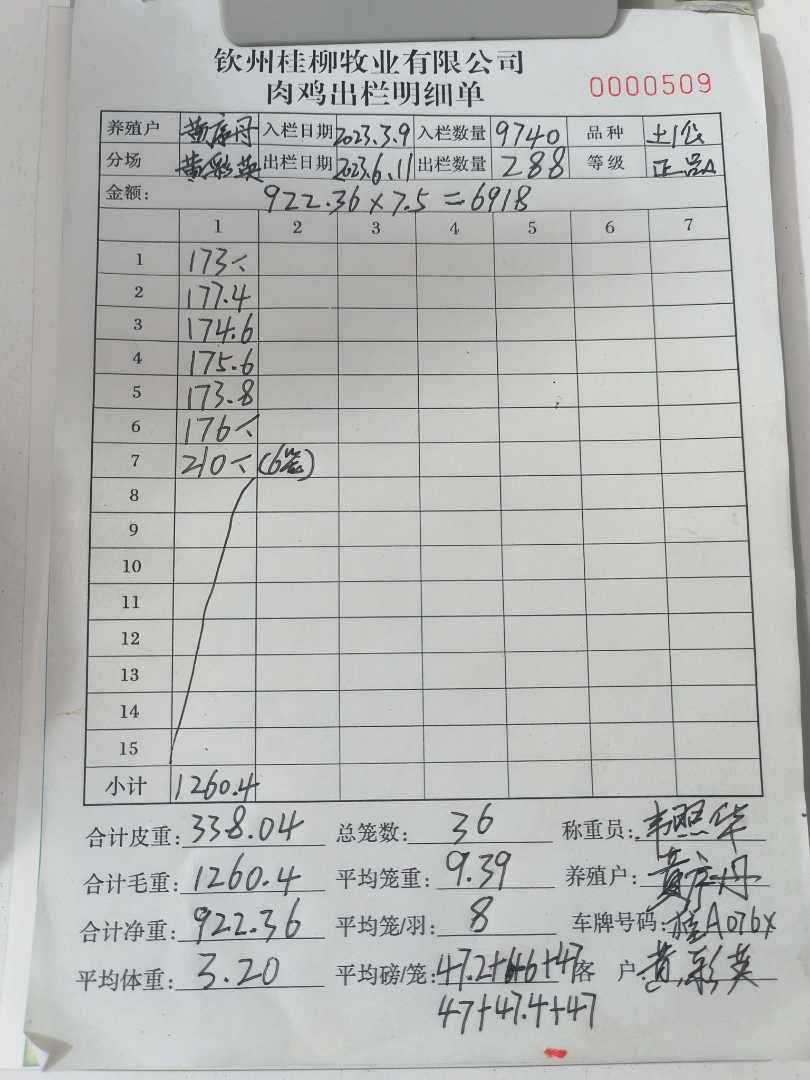 钦州桂柳牧业有限公司
肉鸡出栏明细单 0000509
养殖户 入栏日期 2023.3.9 入栏数量 9740 品种 土1公
分场 黄彩英 出栏日期 2023.6.11 出栏数量 288 等级 正品A
金额: 922.36×7.5=6918
1 2 3 4 5 6 7
1 173
2 177.4
3 174.6
4 175.6
5 173.8
6 176
7 210 (6笼)
8
9
10
11
12
13
14
15
小计 1260.4
合计皮重: 338.04 总笼数: 36 称重员: 韦照华
合计毛重: 1260.4 平均笼重: 9.39 养殖户:
合计净重: 922.36 平均笼/羽: 8 车牌号码: 桂A076X
平均体重: 3.20 平均磅/笼: 47.2+46+47 客 户: 黄彩英
47+47.4+47